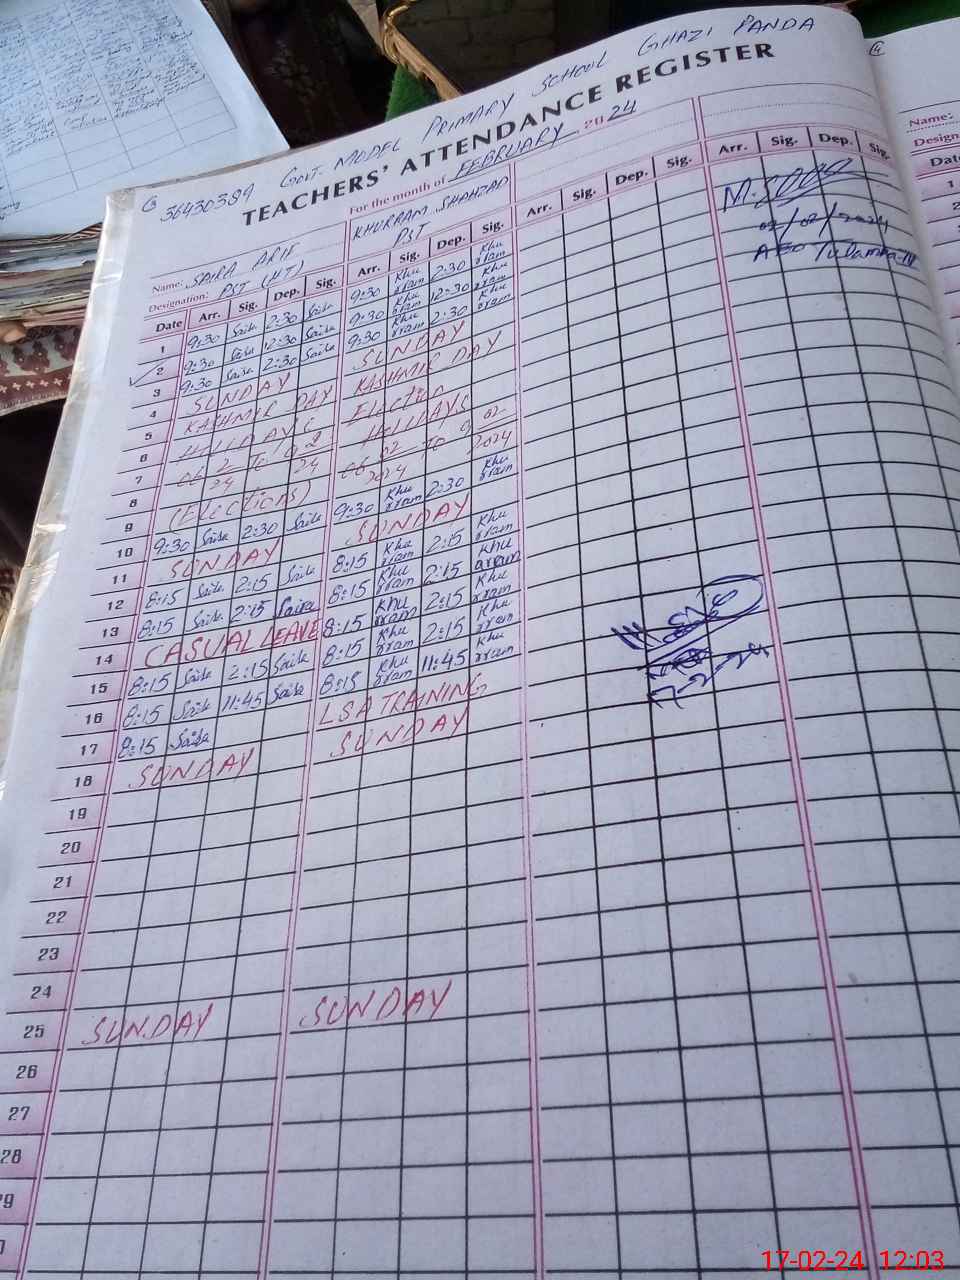 36430389 GOVT. MODEL PRIMARY SCHOOL GHAZI PANDA
TEACHERS' ATTENDANCE REGISTER
For the month of FEBRUARY 2024
Name: SAIRA ARIF KHURRAM SHAHZAD
Designation: PST (HT) PST
Date Arr. Sig. Dep. Sig. Arr. Sig. Dep. Sig. Arr. Sig. Dep. Sig. Arr. Sig. Dep. Sig.
1 9:30 Saira 2:30 Saira 9:30 Khurram 2:30 Khurram
2 9:30 Saira 12:30 Saira 9:30 Khurram 12:30 Khurram
3 9:30 Saira 2:30 Saira 9:30 Khurram 2:30 Khurram
4 SUNDAY SUNDAY
5 KASHMIR DAY KASHMIR DAY
6 HOLIDAYS Election
7 06 2 24 TO 9 2 24 HOLIDAYS
8 (Elections) 06 02 2024 TO 9 02 2024
9
10 9:30 Saira 2:30 Saira 9:30 Khurram 2:30 Khurram
11 SUNDAY SUNDAY
12 8:15 Saira 2:15 Saira 8:15 Khurram 2:15 Khurram
13 8:15 Saira 2:15 Saira 8:15 Khurram 2:15 Khurram
14 CASUAL LEAVE 8:15 Khurram 2:15 Khurram
15 8:15 Saira 2:15 Saira 8:15 Khurram 2:15 Khurram
16 8:15 Saira 11:45 Saira 8:15 Khurram 11:45 Khurram
17 8:15 Saira LSA TRAINING
18 SUNDAY SUNDAY
19
20
21
22
23
24
25 SUNDAY SUNDAY
26
27
28
29
02/02/2024
AEO
Name:
Date
1
2
17-02-24 12:03